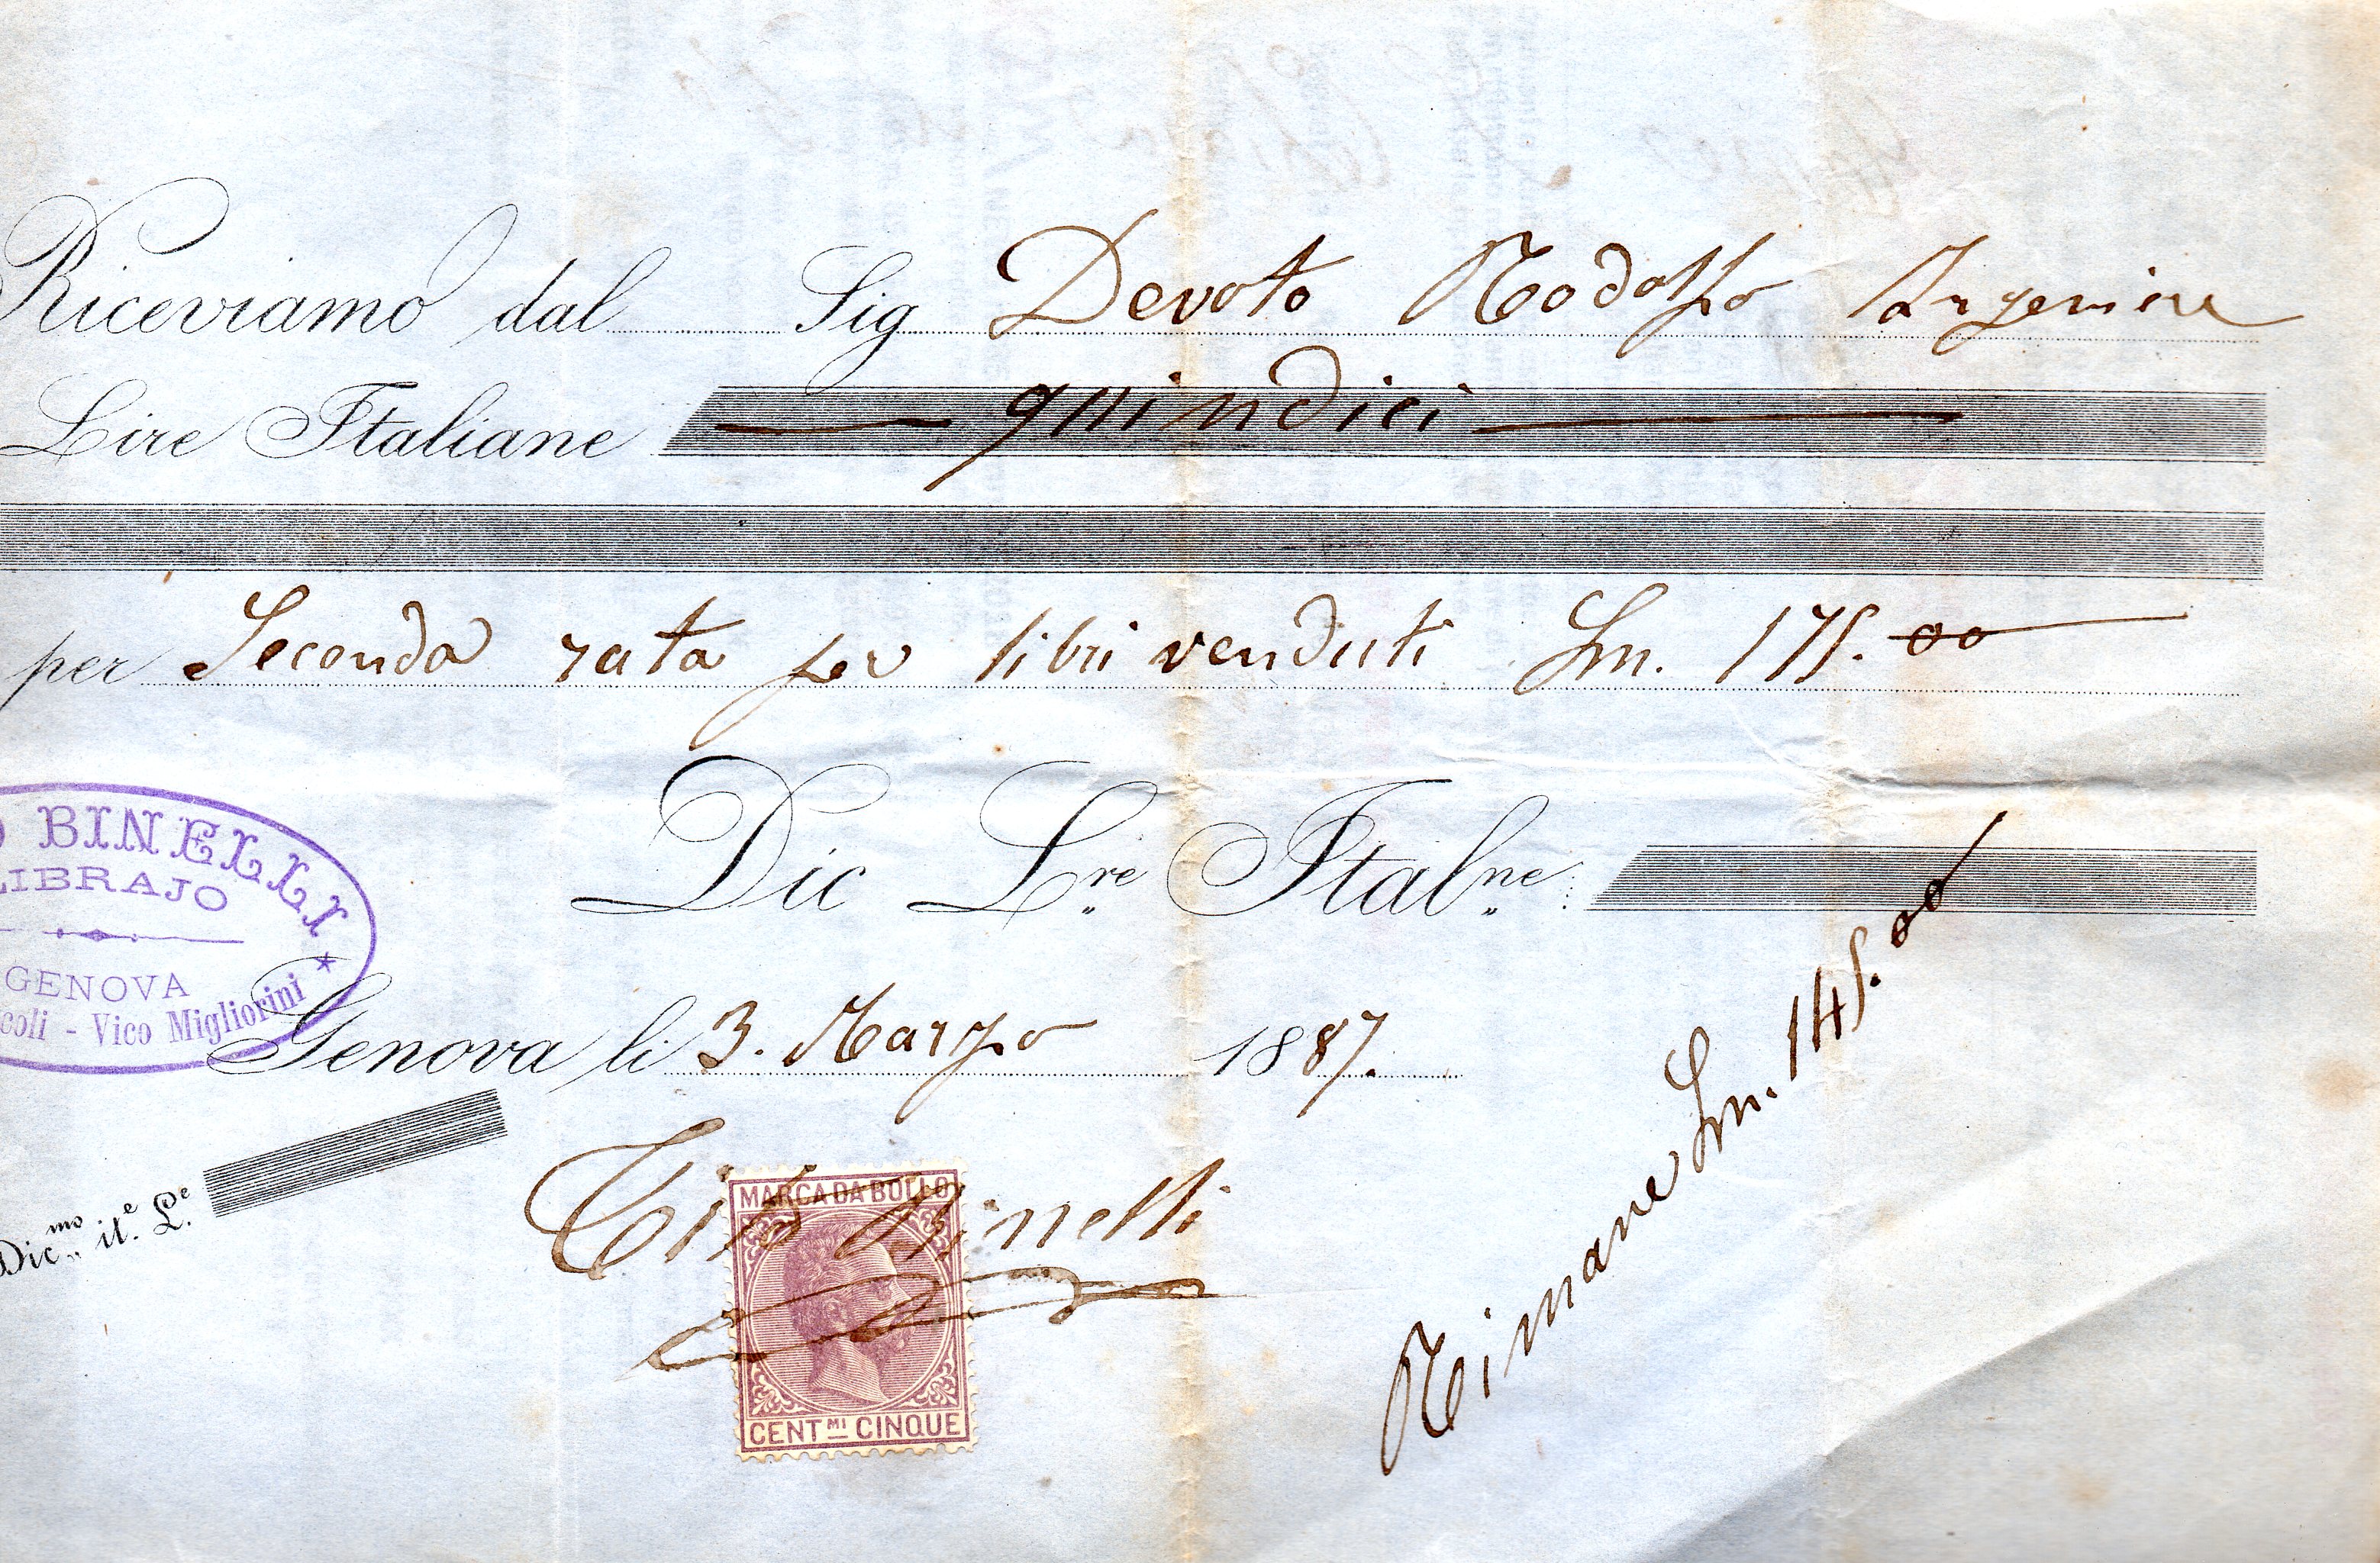 Riceviamo dal Sig Devoto Rodolfo Ingeniere
Lire Italiane quindici
per Seconda rata per libri venduti Ln. 175.00
Dic Lre Italne
BINELLI
LIBRAJO
GENOVA
coli - Vico Migliorini
Genova li 3. Marzo 1887.
Dic.mo it.e L.e
Tito Binelli
MARCA DA BOLLO
CENTMI CINQUE
Rimane Ln. 145.00